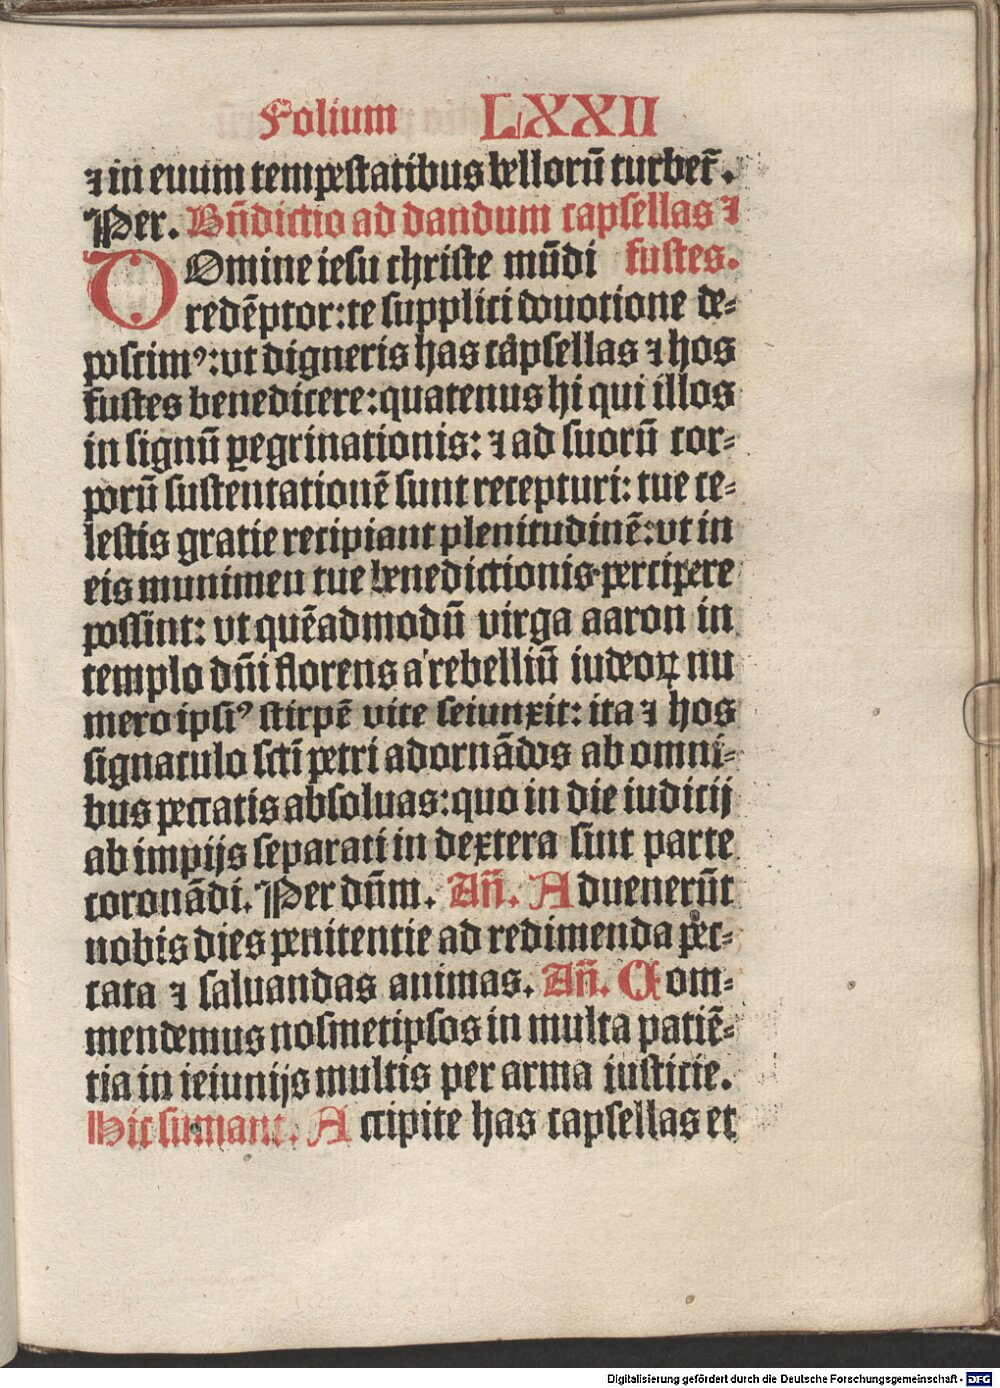 Folium LXXII
⁊ in euum tempestatibus bellorū turbet᷑.
Per. Bn̄dictio ad dandum capsellas ⁊
fustes.
DOmine iesu christe mūdi
redēptor: te supplici deuotione de⸗
poscimꝰ: vt digneris has capsellas ⁊ hos
fustes benedicere: quatenus hi qui illos
in signū ꝑegrinationis: ⁊ ad suorū cor⸗
porū sustentationē sunt recepturi: tue ce⸗
lestis gratie recipiant plenitudinē: vt in
eis munimen tue benedictionis percipere
possint: vt quēadmodū virga aaron in
templo dn̄i florens a rebelliū iudeoꝝ nu
mero ipsiꝰ stirpē vite seiunxit: ita ⁊ hos
signaculo scti petri adornādos ab omni⸗
bus peccatis absoluas: quo in die iudicij
ab impijs separati in dextera sint parte
coronādi. Per dn̄m. An̄. Aduenerūt
nobis dies penitentie ad redimenda pec⸗
cata ⁊ saluandas animas. An̄. Com⸗
mendemus nosmetipsos in multa patiē⸗
tia in ieiunijs multis per arma iusticie.
Hic sumant. Accipite has capsellas et
Digitalisierung gefördert durch die Deutsche Forschungsgemeinschaft - DFG